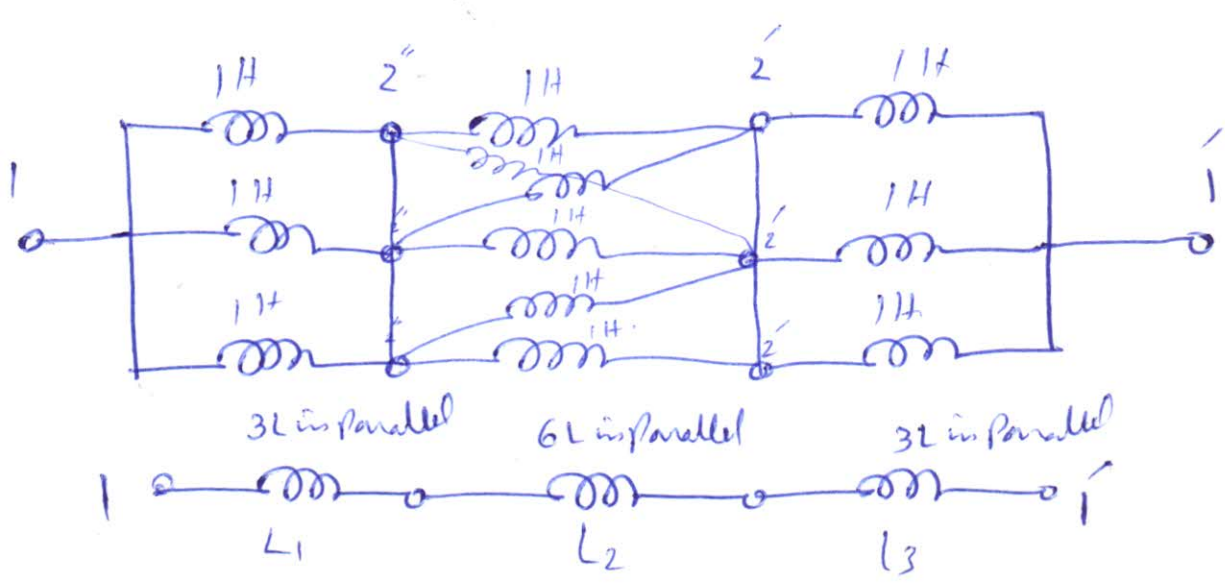 1H 2'' 1H 2' 1H
1H
1 1H 1H 1H 1'
2'' 2'
1H
1H 1H. 1H.
2'' 2'
3L in parallel 6L in parallel 3L in parallel
1 1'
L1 L2 l3